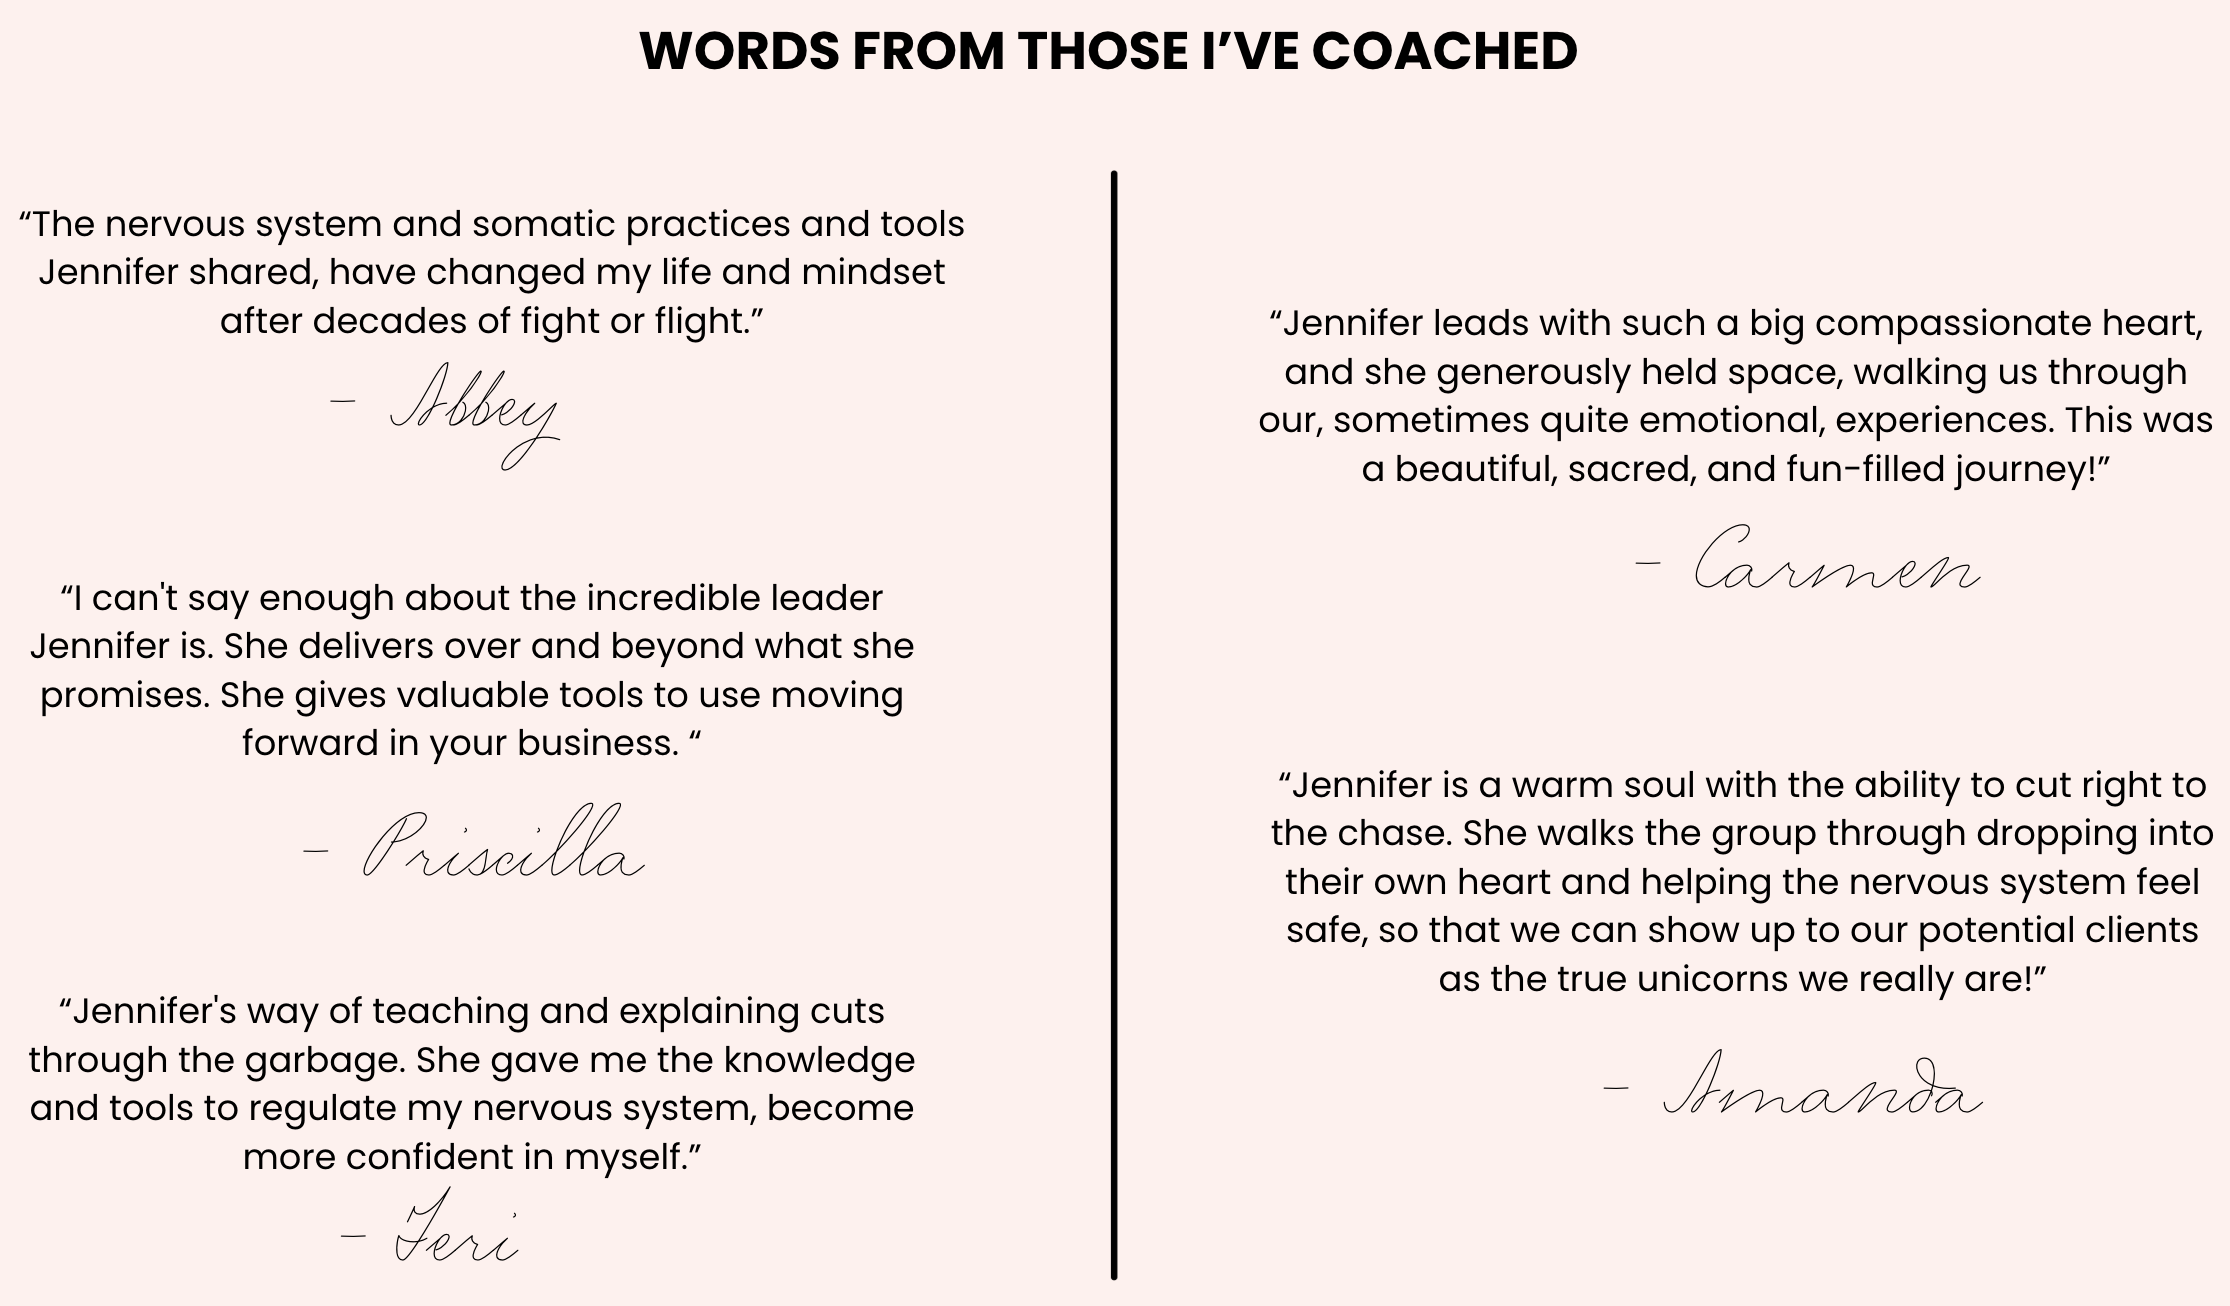 WORDS FROM THOSE I’VE COACHED
“The nervous system and somatic practices and tools
Jennifer shared, have changed my life and mindset
after decades of fight or flight.”
- Abbey
“I can't say enough about the incredible leader
Jennifer is. She delivers over and beyond what she
promises. She gives valuable tools to use moving
forward in your business. “
- Priscilla
“Jennifer's way of teaching and explaining cuts
through the garbage. She gave me the knowledge
and tools to regulate my nervous system, become
more confident in myself.”
- Teri
“Jennifer leads with such a big compassionate heart,
and she generously held space, walking us through
our, sometimes quite emotional, experiences. This was
a beautiful, sacred, and fun-filled journey!”
- Carmen
“Jennifer is a warm soul with the ability to cut right to
the chase. She walks the group through dropping into
their own heart and helping the nervous system feel
safe, so that we can show up to our potential clients
as the true unicorns we really are!”
- Amanda